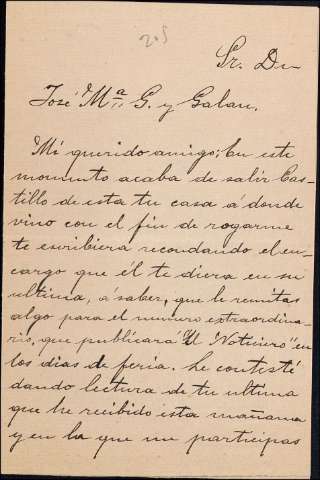 205
Sr. Dn
José Mª G. y Galan.
Mi querido amigo: En este
momento acaba de salir Cas-
tillo de esta tu casa á donde
vino con el fin de rogarme
te escribiera recordando el en-
cargo que él te diera en su
ultima, á saber, que le remitas
algo para el numero extraordina-
rio, que publicara "El Noticiero" en
los dias de feria. Le contesté
dando lectura de tu ultima
que he recibido esta mañana
y en la que me participas